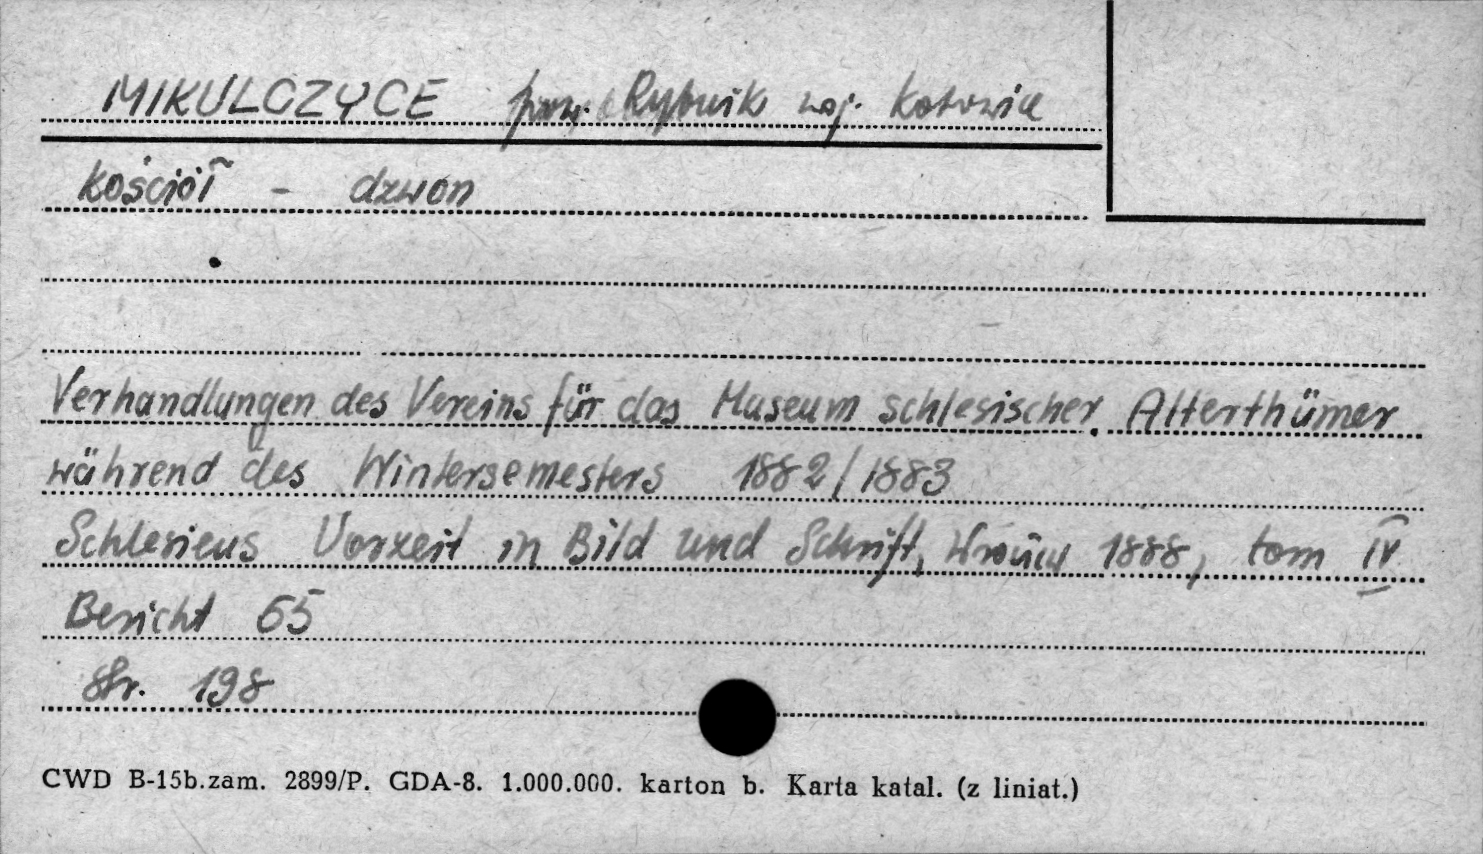 MIKULCZYCE pow. Rybnik woj. Katowice
kościół - dzwon
Verhandlungen des Vereins für das Museum schlesischer Alterthümer
während des Wintersemesters 1882/1883
Schlesiens Vorzeit in Bild und Schrift, Wrocław 1888, tom IV
Bericht 65
Str. 198
CWD B-15b.zam. 2899/P. GDA-8. 1.000.000. karton b. Karta katal. (z liniat.)